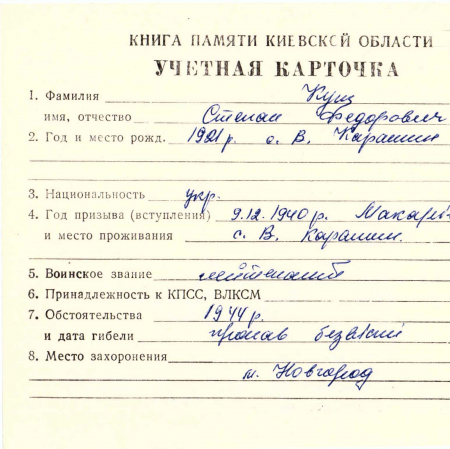 КНИГА ПАМЯТИ КИЕВСКОЙ ОБЛАСТИ
УЧЕТНАЯ КАРТОЧКА
1. Фамилия Кущ
имя, отчество Степан Федорович
2. Год и место рожд. 1921 р. с. В. Карашин
3. Национальность укр.
4. Год призыва (вступления) 9.12.1940 р. Макарів
и место проживания с. В. Карашин.
5. Воинское звание лейтенант
6. Принадлежность к КПСС, ВЛКСМ
7. Обстоятельства 1944 р.
и дата гибели пропав безвісти
8. Место захоронения
м. Новгород